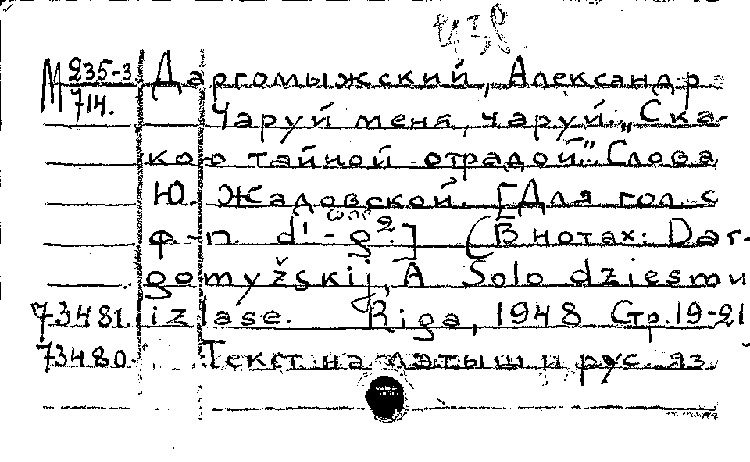 М 235-3 Даргомыжский, Александр
714. Чаруй меня, чаруй. „Ска-
кою тайной отрадой". Слова
Ю. Жадовской. [Для гол. с
ф-п. d¹ - g².] (В нотах: Dar-
gomyžskij, A Solo dziesmu
73481. izlase. Riga, 1948 Стр. 19-21
73480. Текст на латыш и рус. яз.